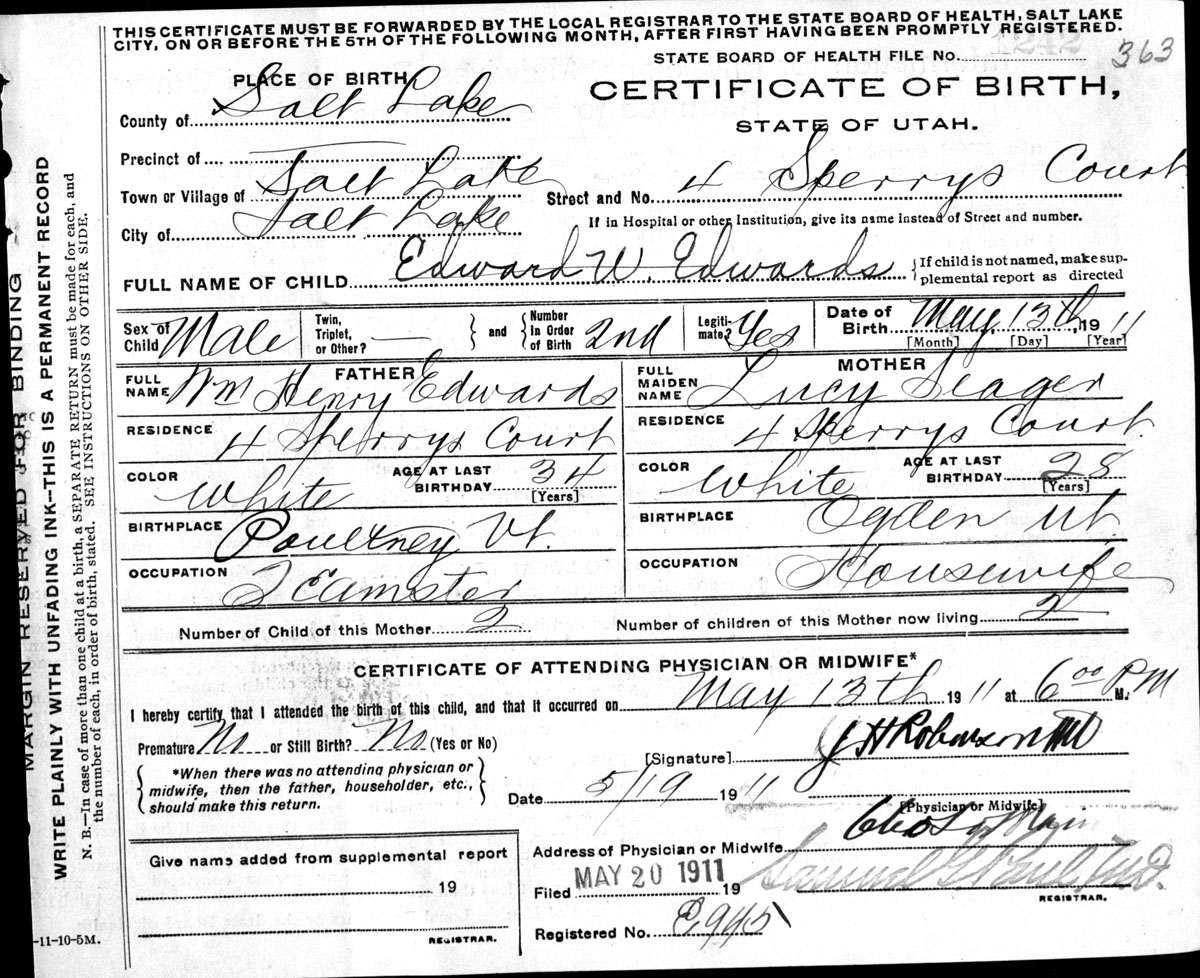 THIS CERTIFICATE MUST BE FORWARDED BY THE LOCAL REGISTRAR TO THE STATE BOARD OF HEALTH, SALT LAKE
CITY, ON OR BEFORE THE 5TH OF THE FOLLOWING MONTH, AFTER FIRST HAVING BEEN PROMPTLY REGISTERED.
STATE BOARD OF HEALTH FILE No. 363
PLACE OF BIRTH
CERTIFICATE OF BIRTH,
STATE OF UTAH.
County of Salt Lake
Precinct of
Town or Village of Salt Lake Street and No. 4 Sperrys Court
City of Salt Lake If in Hospital or other Institution, give its name instead of Street and number.
FULL NAME OF CHILD Edward W. Edwards { If child is not named, make sup-
plemental report as directed
Sex of Child Male Twin, Triplet, or Other? — } and { Number In Order of Birth 2nd Legiti-mate? Yes Date of Birth May 13th, 1911
[Month] [Day] [Year]
FATHER MOTHER
FULL NAME Wm Henry Edwards FULL MAIDEN NAME Lucy Seager
RESIDENCE 4 Sperrys Court RESIDENCE 4 Sperrys Court
COLOR White AGE AT LAST BIRTHDAY 34 [Years] COLOR White AGE AT LAST BIRTHDAY 28 [Years]
BIRTHPLACE Poultney Vt. BIRTHPLACE Ogden Ut.
OCCUPATION Teamster OCCUPATION Housewife
Number of Child of this Mother 2 Number of children of this Mother now living 2
CERTIFICATE OF ATTENDING PHYSICIAN OR MIDWIFE*
I hereby certify that I attended the birth of this child, and that it occurred on May 13th 1911 at 6 00 PM M.
Premature No or Still Birth? No (Yes or No)
[Signature] J H Robinson MD
{ *When there was no attending physician or
midwife, then the father, householder, etc.,
should make this return. }
Date 5/19 1911
[Physician or Midwife]
Give name added from supplemental report
19
REGISTRAR.
Address of Physician or Midwife
Filed MAY 20 1911 19 Samuel G. Paul, M.D.
REGISTRAR.
Registered No. E945
-11-10-5M.
MARGIN RESERVED FOR BINDING
WRITE PLAINLY WITH UNFADING INK—THIS IS A PERMANENT RECORD
N. B.—In case of more than one child at a birth, a SEPARATE RETURN must be made for each, and
the number of each, in order of birth, stated. SEE INSTRUCTION ON OTHER SIDE.